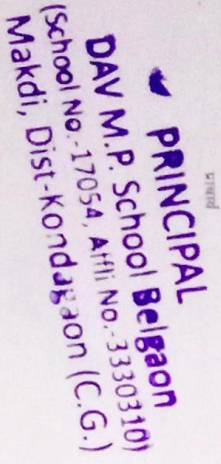 PRINCIPAL
DAV M.P. School Belgaon
(School No.-17054, Affli No.-3330310)
Makdi, Dist-Kondagaon (C.G.)